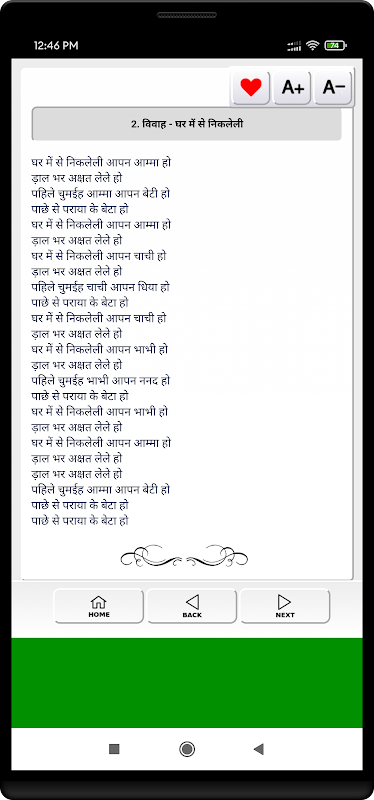 12:46 PM
74
A+
A−
2. विवाह - घर में से निकलेली
घर में से निकलेली आपन आम्मा हो
ड़ाल भर अक्षत लेले हो
पहिले चुमईह आम्मा आपन बेटी हो
पाछे से पराया के बेटा हो
घर में से निकलेली आपन आम्मा हो
ड़ाल भर अक्षत लेले हो
घर में से निकलेली आपन चाची हो
ड़ाल भर अक्षत लेले हो
पहिले चुमईह चाची आपन धिया हो
पाछे से पराया के बेटा हो
घर में से निकलेली आपन चाची हो
ड़ाल भर अक्षत लेले हो
घर में से निकलेली आपन भाभी हो
ड़ाल भर अक्षत लेले हो
पहिले चुमईह भाभी आपन ननद हो
पाछे से पराया के बेटा हो
घर में से निकलेली आपन भाभी हो
ड़ाल भर अक्षत लेले हो
घर में से निकलेली आपन आम्मा हो
ड़ाल भर अक्षत लेले हो
ड़ाल भर अक्षत लेले हो
पहिले चुमईह आम्मा आपन बेटी हो
पाछे से पराया के बेटा हो
पाछे से पराया के बेटा हो
HOME
BACK
NEXT